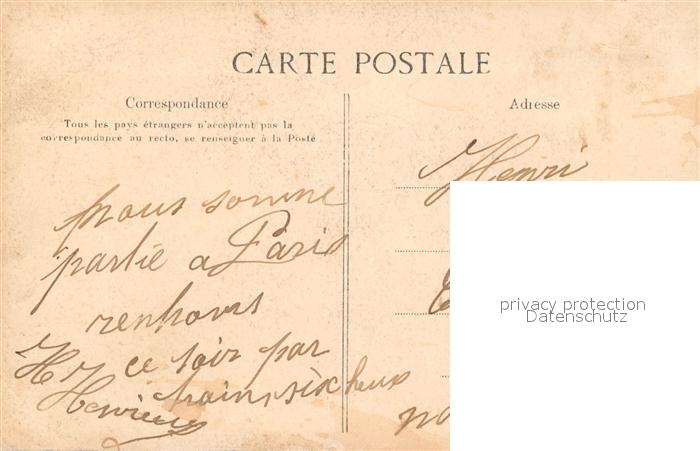 CARTE POSTALE
Correspondance
Tous les pays étrangers n'acceptent pas la
correspondance au recto, se renseigner à la Poste
nous somme
partie a Paris
rentrons
ce soir par
train six heur
Adresse
Henri
privacy protection
Datenschutz